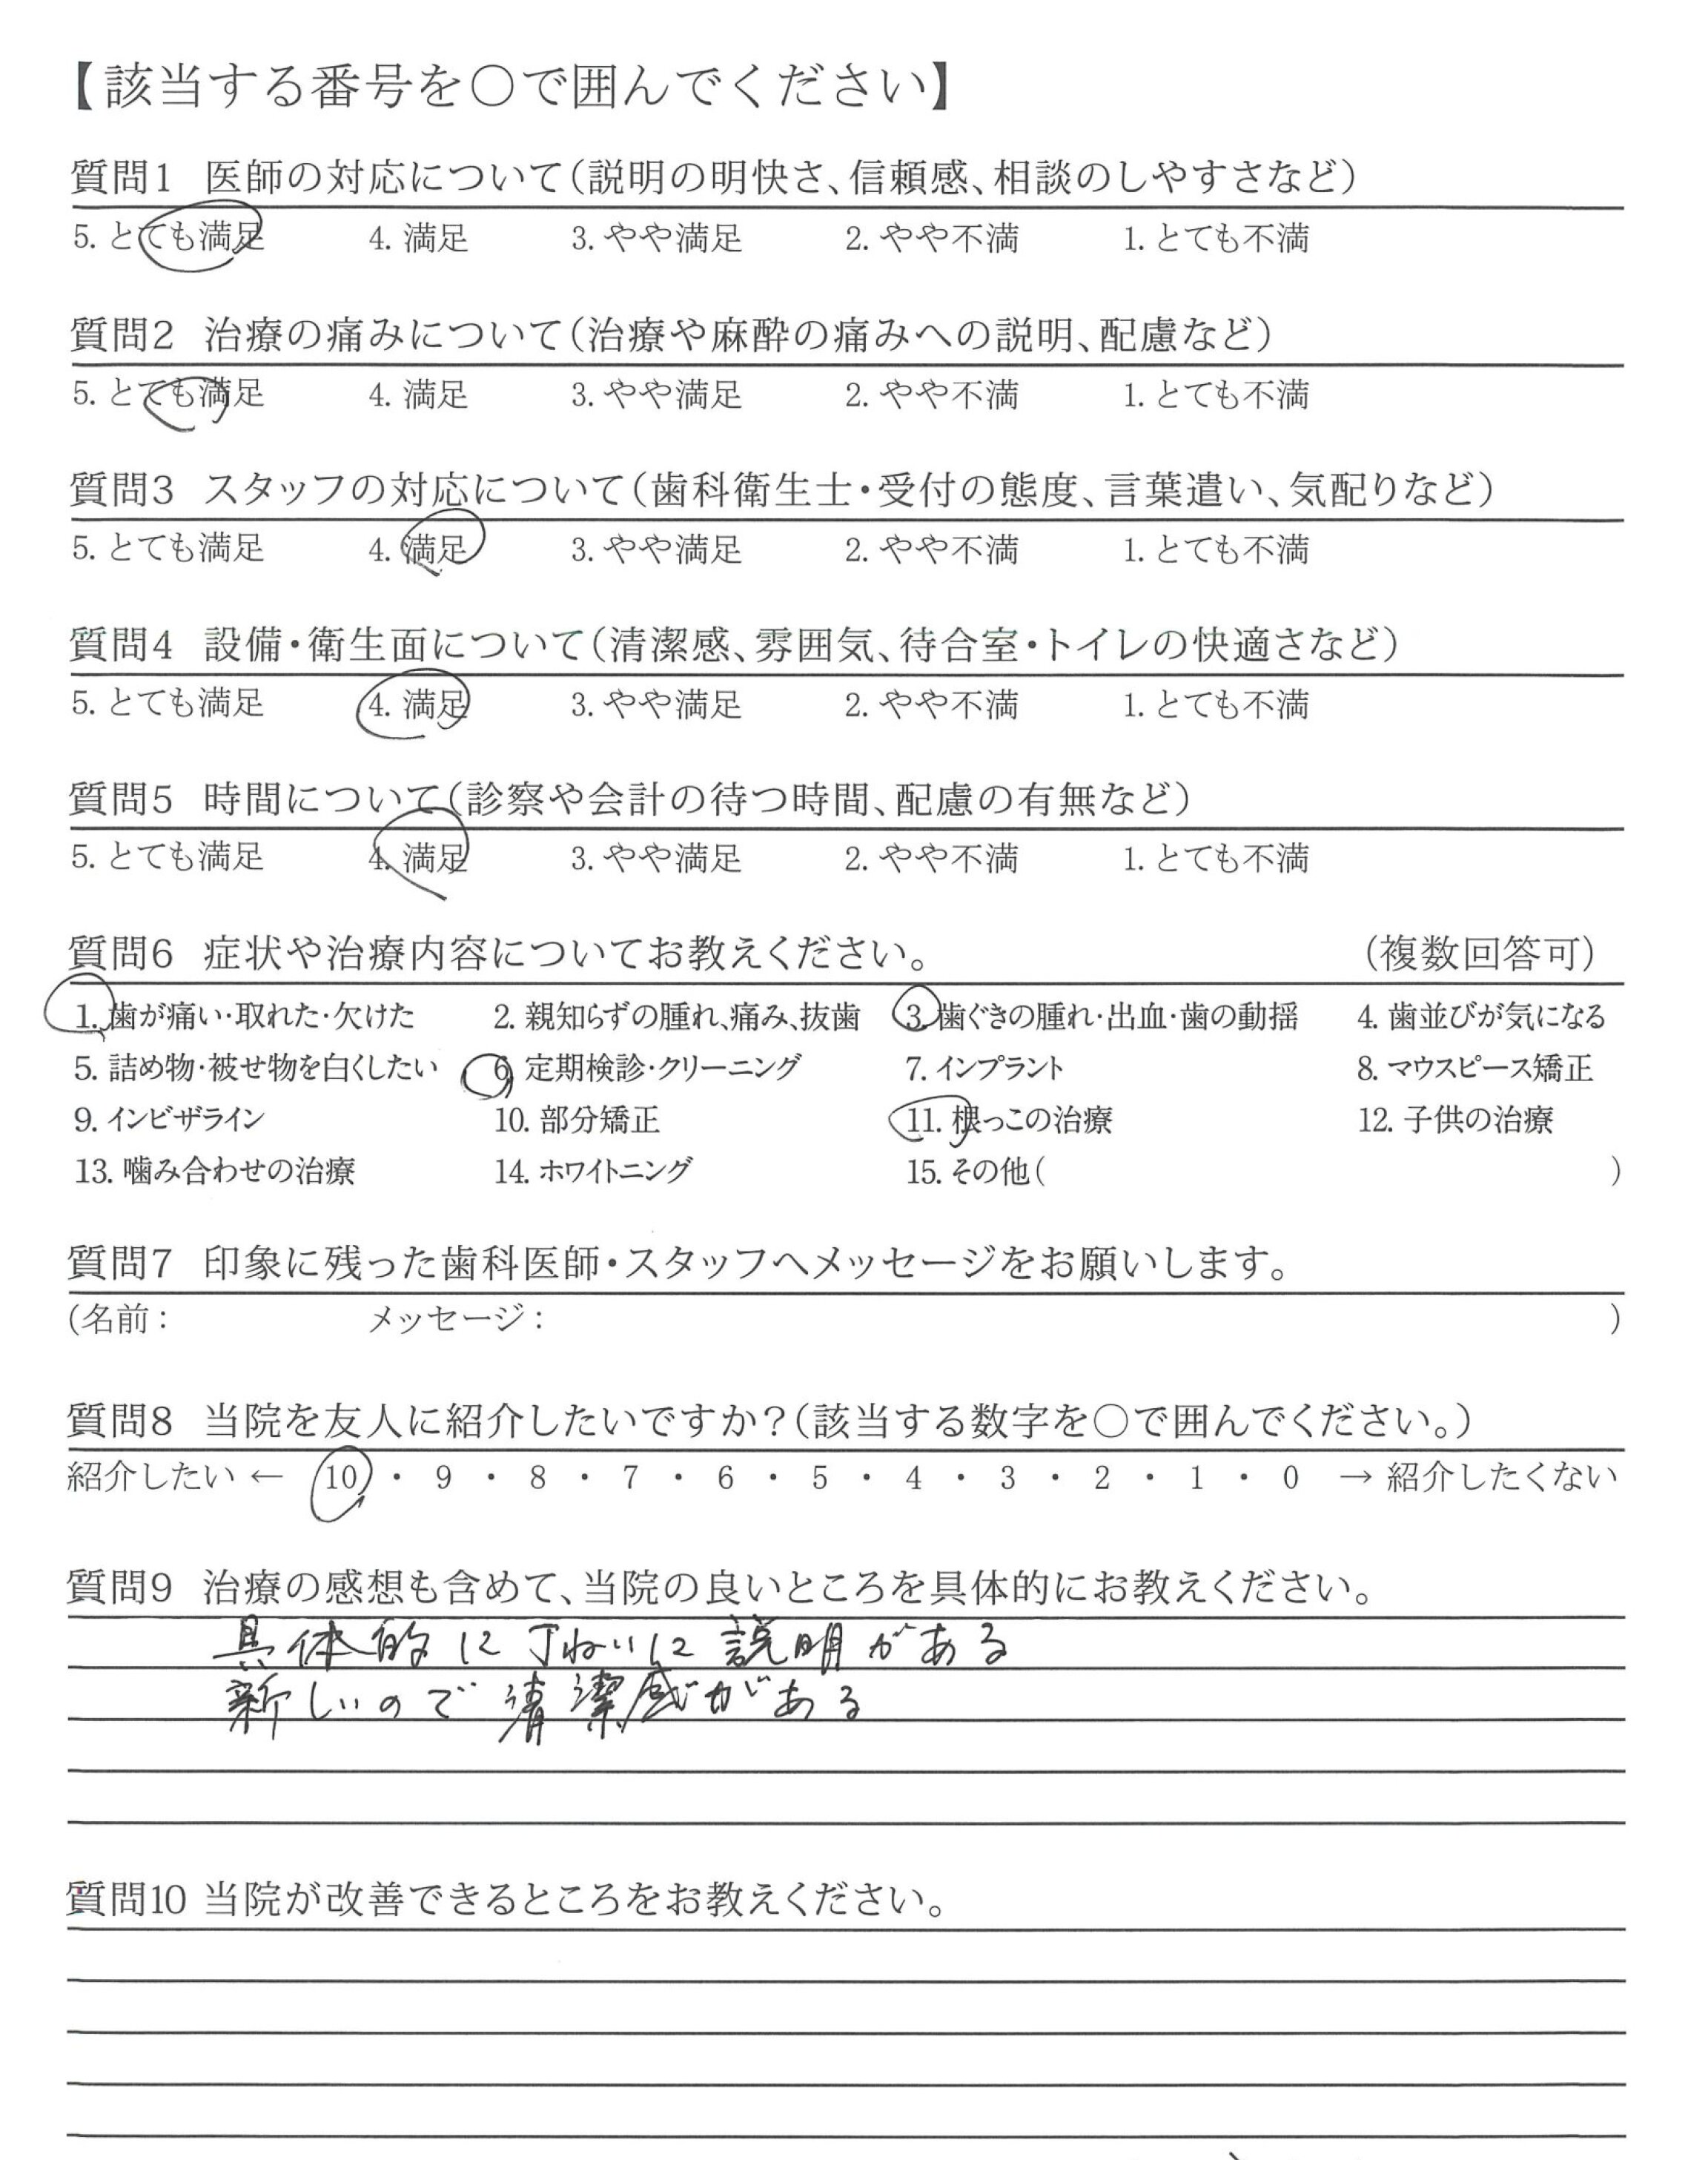 【該当する番号を〇で囲んでください】
質問1 医師の対応について(説明の明快さ、信頼感、相談のしやすさなど)
5. とても満足 4. 満足 3. やや満足 2. やや不満 1. とても不満
質問2 治療の痛みについて(治療や麻酔の痛みへの説明、配慮など)
5. とても満足 4. 満足 3. やや満足 2. やや不満 1. とても不満
質問3 スタッフの対応について(歯科衛生士・受付の態度、言葉遣い、気配りなど)
5. とても満足 4. 満足 3. やや満足 2. やや不満 1. とても不満
質問4 設備・衛生面について(清潔感、雰囲気、待合室・トイレの快適さなど)
5. とても満足 4. 満足 3. やや満足 2. やや不満 1. とても不満
質問5 時間について(診察や会計の待つ時間、配慮の有無など)
5. とても満足 4. 満足 3. やや満足 2. やや不満 1. とても不満
質問6 症状や治療内容についてお教えください。 (複数回答可)
1. 歯が痛い・取れた・欠けた 2. 親知らずの腫れ、痛み、抜歯 3. 歯ぐきの腫れ・出血・歯の動揺 4. 歯並びが気になる
5. 詰め物・被せ物を白くしたい 6. 定期検診・クリーニング 7. インプラント 8. マウスピース矯正
9. インビザライン 10. 部分矯正 11. 根っこの治療 12. 子供の治療
13. 噛み合わせの治療 14. ホワイトニング 15. その他( )
質問7 印象に残った歯科医師・スタッフへメッセージをお願いします。
(名前: メッセージ: )
質問8 当院を友人に紹介したいですか?(該当する数字を〇で囲んでください。)
紹介したい ← 10 ・ 9 ・ 8 ・ 7 ・ 6 ・ 5 ・ 4 ・ 3 ・ 2 ・ 1 ・ 0 → 紹介したくない
質問9 治療の感想も含めて、当院の良いところを具体的にお教えください。
具体的に丁ねいに説明がある
新しいので清潔感がある
質問10 当院が改善できるところをお教えください。